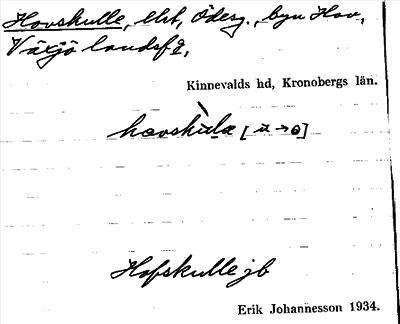 Hovskulle, ellst, Ödesg., byn Hov,
Växjö landsfg,
Kinnevalds hd, Kronobergs län.
hovskùla [u → ɵ]
Hofskulle jb
Erik Johannesson 1934.